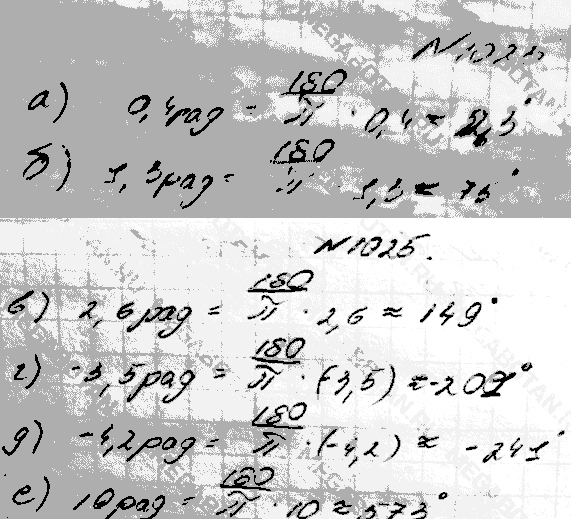 №1025
а) 0,4рад = 180/π · 0,4 ≈ 23°
б) 1,3рад = 180/π · 1,3 ≈ 75°
№1025.
в) 2,6рад = 180/π · 2,6 ≈ 149°
г) -3,5рад = 180/π · (-3,5) ≈ -201°
д) -4,2рад = 180/π · (-4,2) ≈ -241°
е) 10рад = 180/π · 10 ≈ 573°